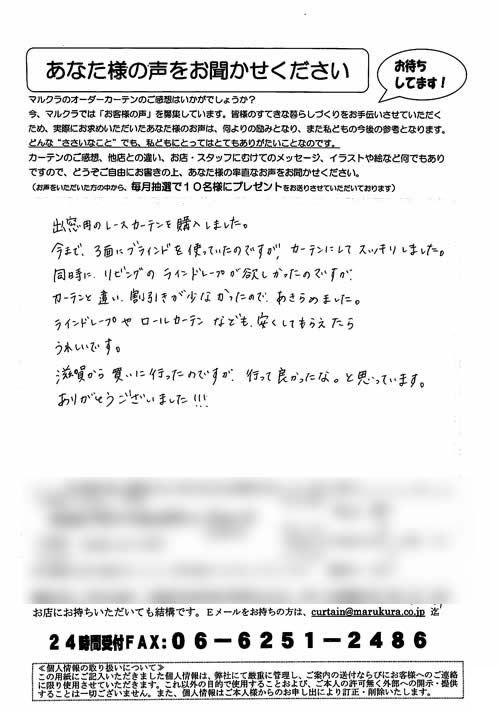 あなた様の声をお聞かせください
お待ち
してます！
マルクラのオーダーカーテンのご感想はいかがでしょうか？
今、マルクラでは「お客様の声」を募集しています。皆様のすてきな暮らしづくりをお手伝いさせていただく
ため、実際にお求めいただいたあなた様のお声は、何よりの励みとなり、また私どもの今後の参考となります。
どんな“ささいなこと”でも、私どもにとってはとてもありがたいことなのです。
カーテンのご感想、他店との違い、お店・スタッフにむけてのメッセージ、イラストや絵など何でもあり
ですので、どうぞご自由にお書きの上、あなた様の率直なお声をお聞かせください。
（お声をいただいた方の中から、毎月抽選で１０名様にプレゼントをお送りさせていただいております）
出窓用のレースカーテンを購入しました。
今まで、3面にブラインドを使っていたのですが、カーテンにしてスッキリしました。
同時に、リビングのラインドレープが欲しかったのですが、
カーテンと違い、割引きが少なかったので、あきらめました。
ラインドレープやロールカーテンなども、安くしてもらえたら
うれしいです。
滋賀から買いに行ったのですが、行って良かったな。と思っています。
ありがとうございました!!!
お店にお持ちいただいても結構です。Ｅメールをお持ちの方は、curtain@marukura.co.jp 迄
２４時間受付ＦＡＸ：０６－６２５１－２４８６
≪個人情報の取り扱いについて≫
この用紙にご記入いただきました個人情報は、弊社にて厳重に管理し、ご案内の送付ならびにお客様へのご連絡
に限り使用させていただきます。これ以外の目的で使用することおよび、ご本人の許可無く外部への開示・提供
することは一切ございません。また、個人情報はご本人様からのお申し出により訂正・削除いたします。